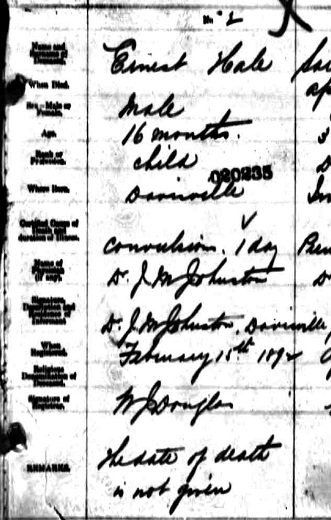 No 2
Name and Surname of Deceased. Ernest Hale
When Died.
Sex - Male or Female. Male
Age. 16 months.
Rank or Profession. child
020235
Where Born.
Certified Cause of Death and duration of Illness. convulsions. 1 day
Name of Physician (if any). Dr. J. M. Johnston
Signature, Description and Residence of Informant Dr. J. M. Johnston,
When Registered. February 15th 1892
Religious Denomination of Deceased.
Signature of Registrar. W J Douglas
REMARKS. the date of death
is not given